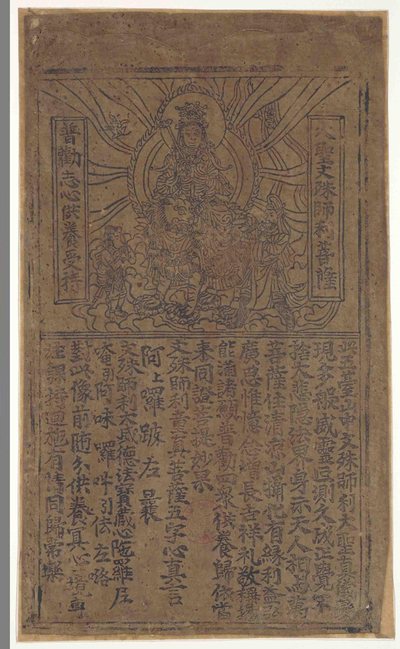 大聖文殊師利菩薩
普勸志心供養受持
此五臺山中文殊師利大聖真儀變
現多般威靈叵測久成正覺不
捨大悲隱法界身示天人相與萬
菩薩住清涼山攝化有緣利益弘
廣思惟憶念增長吉祥礼敬稱揚
能滿諸願普勸四眾供養歸依當
來同證菩提妙果
文殊師利童真菩薩五字心真言
阿上囉跛左曩
文殊師利大威德法寶藏心陀羅尼
唵引阿味囉吽引佉左咯
對此像前随分供養冥心一境專
注課持迴施有情同歸常樂